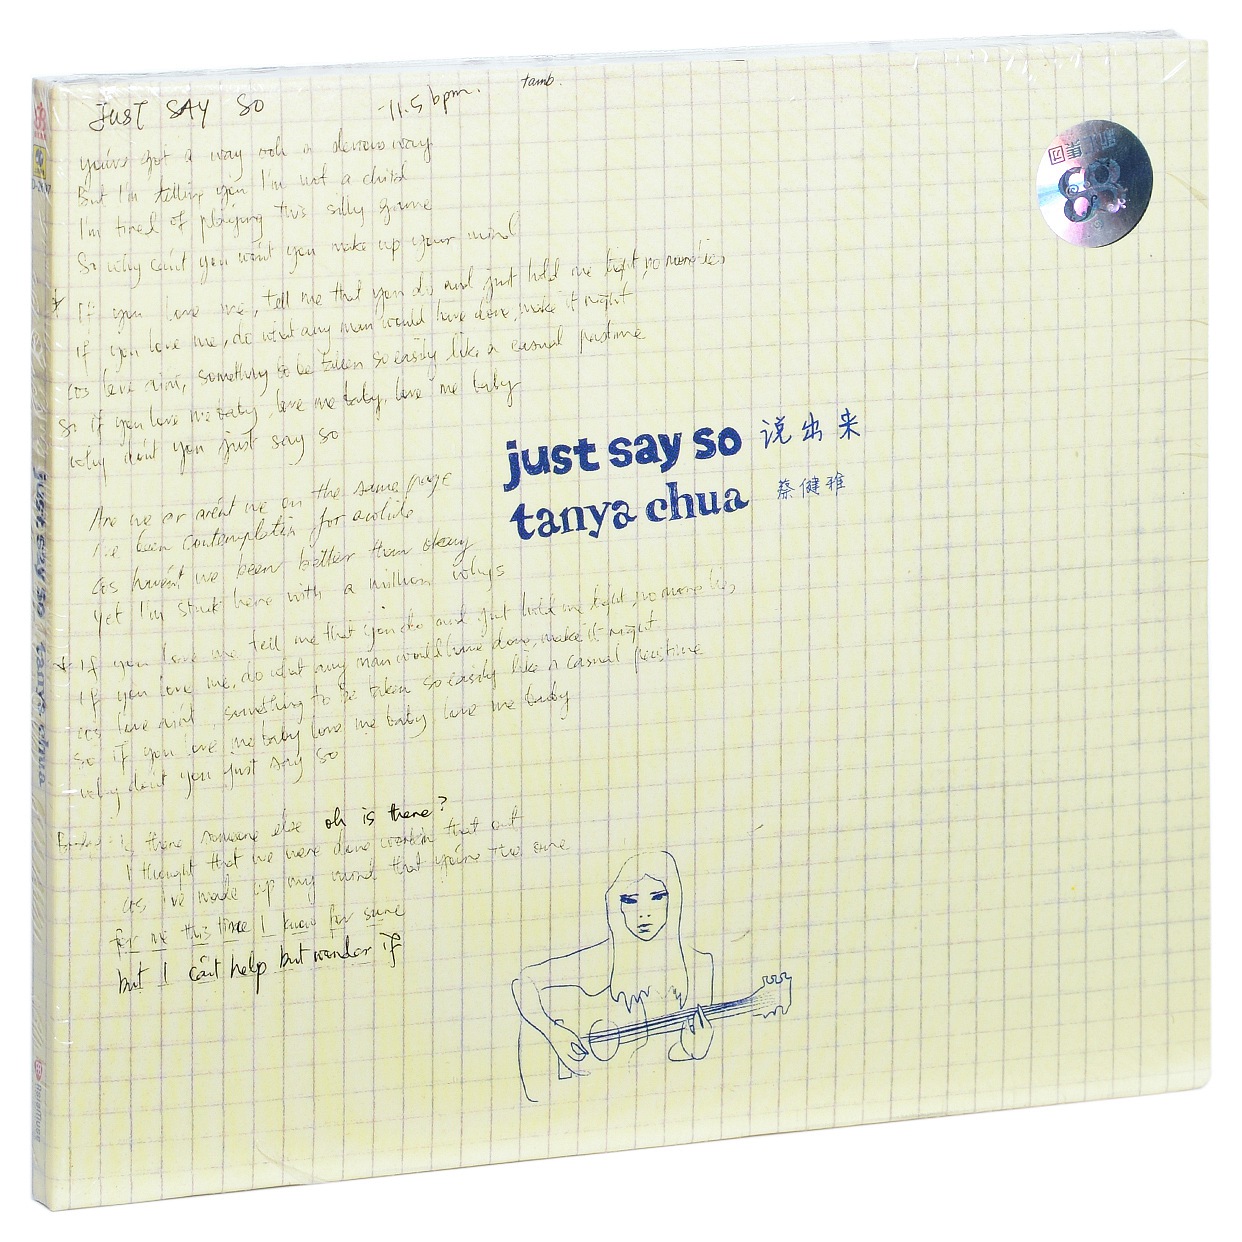 JUST SAY SO -11.5 bpm. tamb.
you've got a way ooh a devious way
But I'm telling you I'm not a child
I'm tired of playing this silly game
So why can't you won't you make up your mind
If you love me, tell me that you do and just hold me tight no more lies
If you love me, do what any man would have done, make it right
cos love ain't something to be taken so easily like a casual pastime
So if you love me baby, love me baby, love me baby
why don't you just say so
just say so 说出来
tanya chua 蔡健雅
Are we or aren't we on the same page
I've been contemplatin for awhile
cos haven't we been better than okay
yet I'm stuck here with a million whys
If you love me tell me that you do and just hold me tight, no more lies
If you love me, do what any man would have done, make it right
cos love ain't something to be taken so easily like a casual pastime
So if you love me baby love me baby, love me baby
why don't you just say so
Is there someone else oh is there?
I thought that we were done workin that out
cos I've made up my mind that you're the one
for me this time I know for sure
but I can't help but wonder if
just say so tanya chua